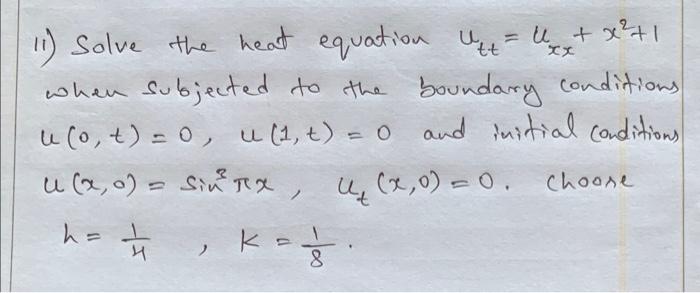 11) Solve the heat equation u_tt = u_xx + x²+1
when subjected to the boundary conditions
u(0,t) = 0, u(1,t) = 0 and initial conditions
u(x,0) = sin³ πx, u_t(x,0) = 0. choose
h = 1/4, K = 1/8.